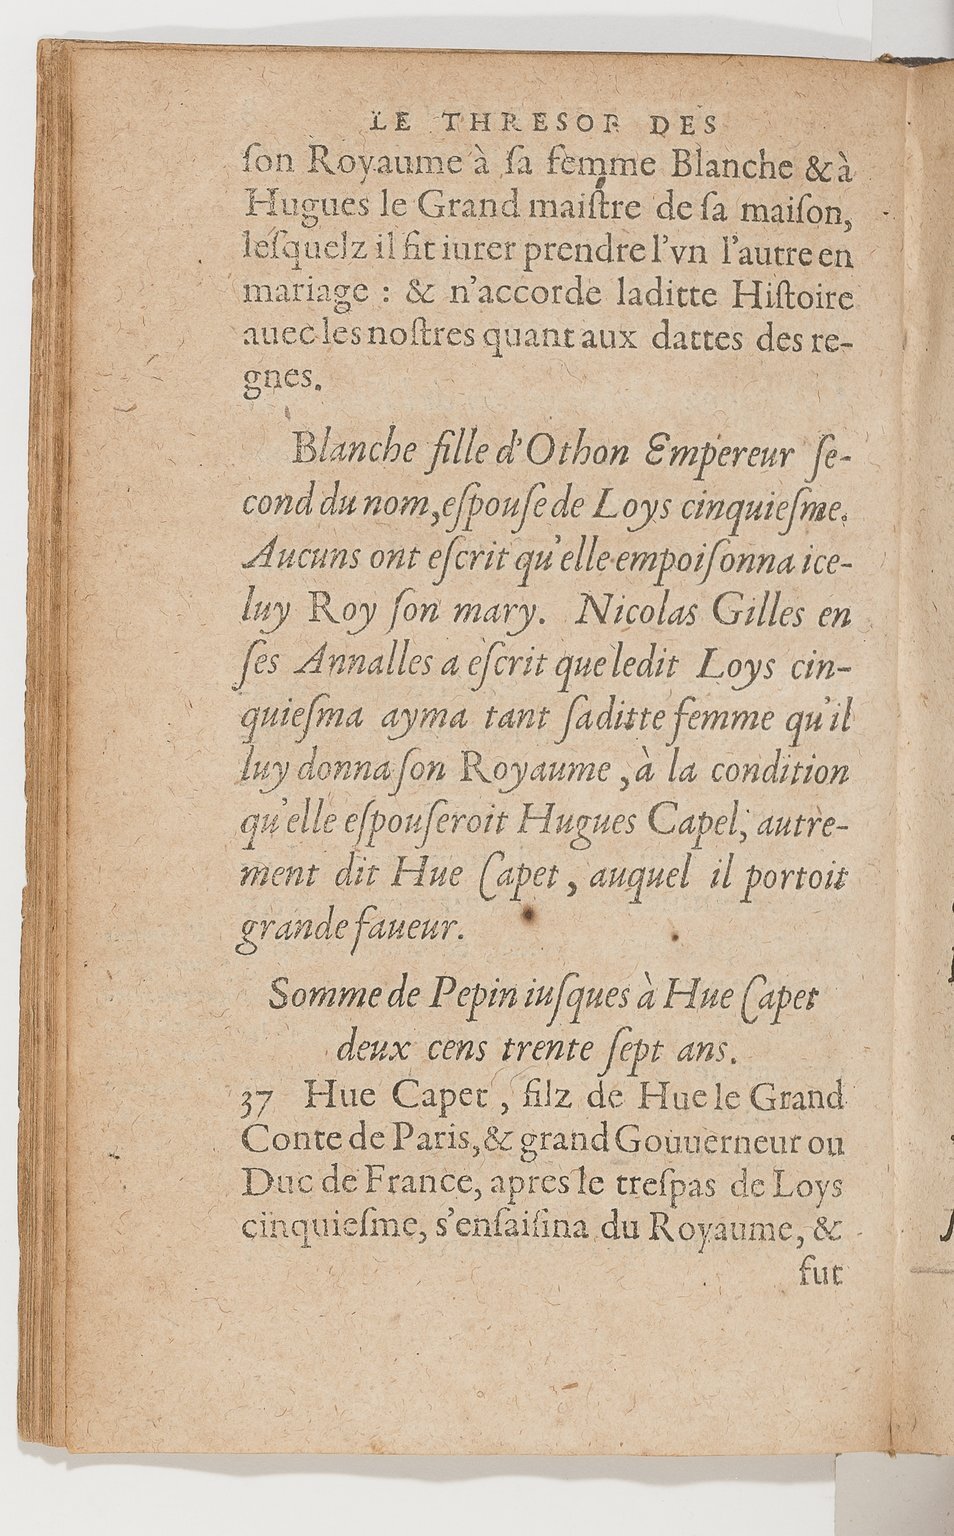 LE THRESOR DES
ſon Royaume à ſa femme Blanche & à
Hugues le Grand maiſtre de ſa maiſon,
leſquelz il fit iurer prendre l'vn l'autre en
mariage : & n'accorde laditte Hiſtoire
auec les noſtres quant aux dattes des re-
gnes.
Blanche fille d'Othon Empereur ſe-
cond du nom, eſpouſe de Loys cinquieſme.
Aucuns ont eſcrit qu'elle empoiſonna ice-
luy Roy ſon mary. Nicolas Gilles en
ſes Annalles a eſcrit que ledit Loys cin-
quieſma ayma tant ſaditte femme qu'il
luy donna ſon Royaume, à la condition
qu'elle eſpouſeroit Hugues Capel, autre-
ment dit Hue Capet, auquel il portoit
grande faueur.
Somme de Pepin iuſques à Hue Capet
deux cens trente ſept ans.
37 Hue Capet, filz de Hue le Grand
Conte de Paris, & grand Gouuerneur ou
Duc de France, apres le treſpas de Loys
cinquieſme, s'enſaiſina du Royaume, &
fut